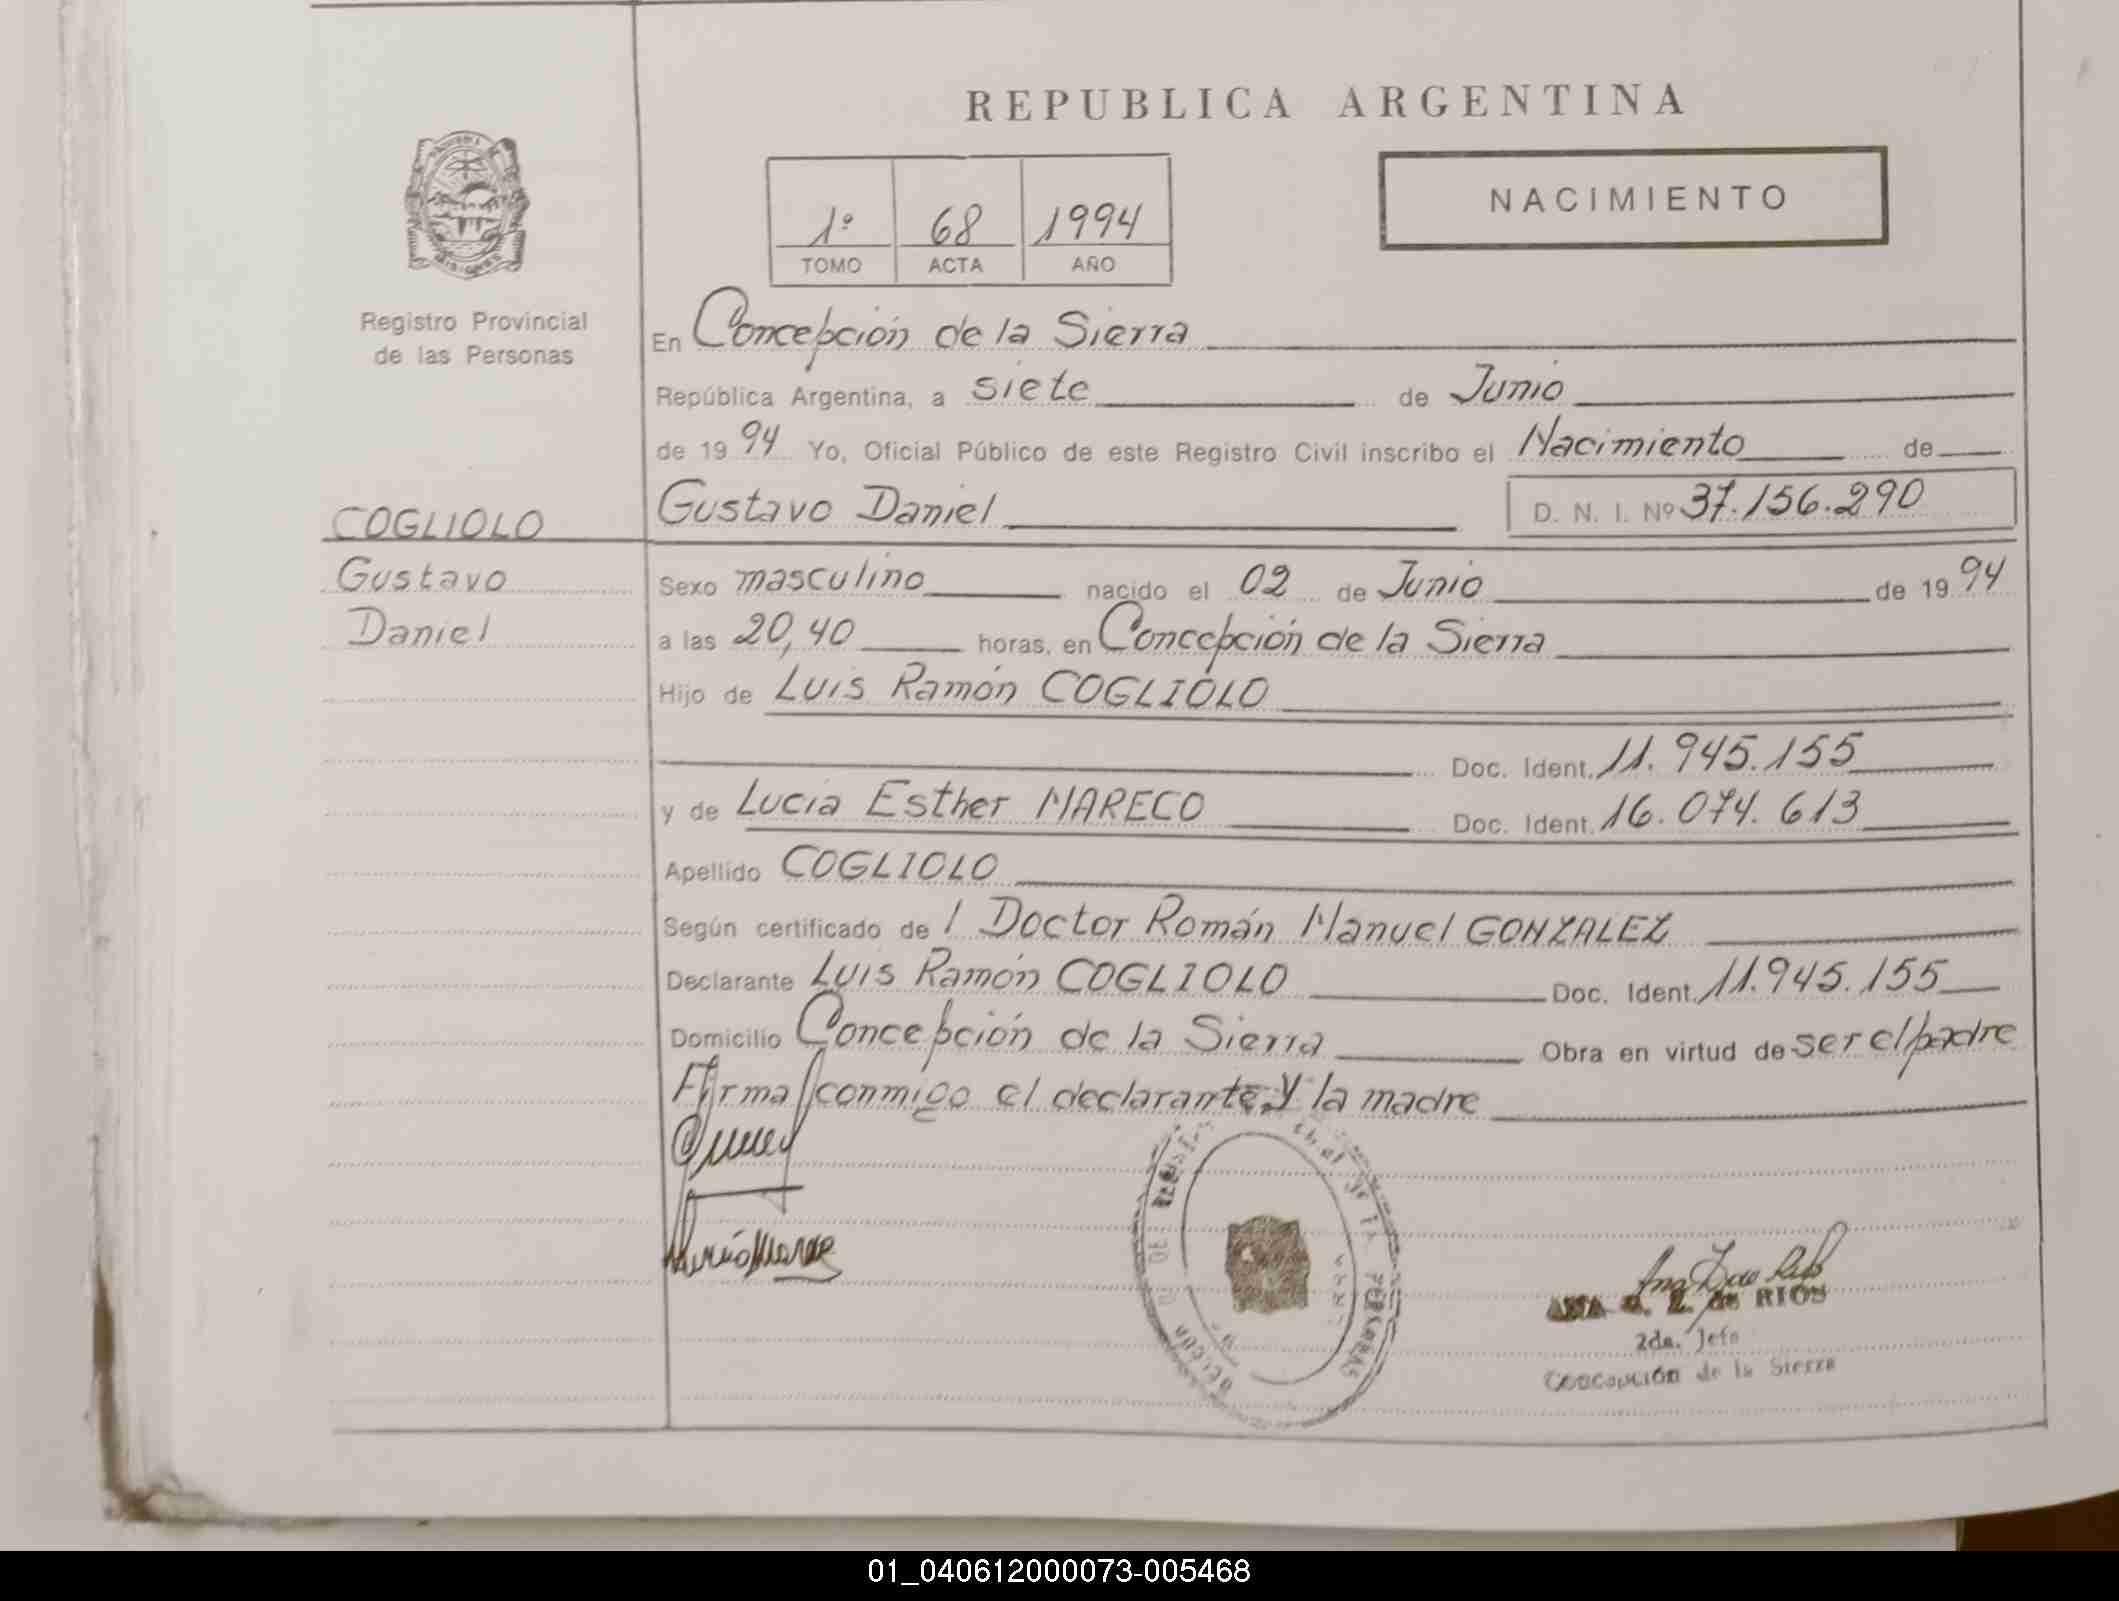 REPUBLICA ARGENTINA
NACIMIENTO
1º 68 1994
TOMO ACTA AÑO
Registro Provincial
de las Personas
En Concepción de la Sierra
República Argentina, a siete de Junio
de 1994 Yo, Oficial Público de este Registro Civil inscribo el Nacimiento de
COGLIOLO
Gustavo
Daniel
Gustavo Daniel D. N. I. Nº 37.156.290
Sexo masculino nacido el 02 de Junio de 1994
a las 20,40 horas, en Concepción de la Sierra
Hijo de Luis Ramón COGLIOLO
Doc. Ident. 11.945.155
y de Lucia Esther MARECO Doc. Ident. 16.074.613
Apellido COGLIOLO
Según certificado de l Doctor Román Manuel GONZALEZ
Declarante Luis Ramón COGLIOLO Doc. Ident. 11.945.155
Domicilio Concepción de la Sierra Obra en virtud de ser el padre
Firma conmigo el declarante y la madre
de RIOS
2da. Jefe
Concepción de la Sierra
01_040612000073-005468